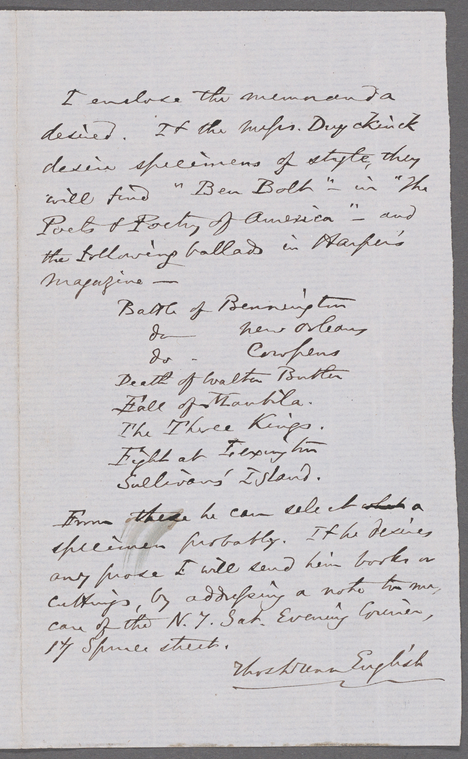 I enclose the memoranda
desired. If the Messrs. Duyckinck
desire specimens of style, they
will find "Ben Bolt" – in "The
Poets & Poetry of America" – and
the following ballads in Harper's
Magazine —
Battle of Bennington
do — New Orleans
do - Cowpens
Death of Walter Butler
Fall of Maubila.
The Three Kings.
Fight at Lexington
Sullivan's Island.
From these he can select a
specimen probably. If he desires
any prose I will send him books or
cuttings, by addressing a note to me,
care of the N. Y. Sat. Evening Courier,
14 Spruce street.
Thos Dunn English